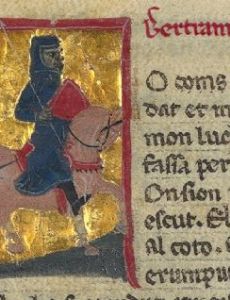 Bertram
O coms
dat er m
mon luc
fassa per
On sion
escut. El
al coto.
erumpu